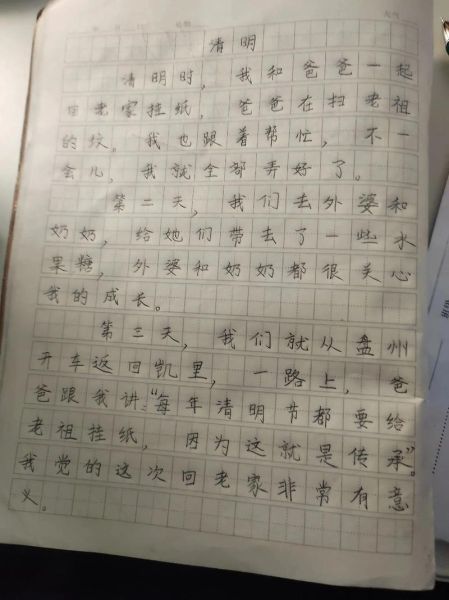 清明
清明时，我和爸爸一起
回老家挂纸，爸爸在扫老祖
的坟。我也跟着帮忙，不一
会儿，我就全部弄好了。
第二天，我们去外婆和
奶奶，给她们带去了一些水
果糖，外婆和奶奶都很关心
我的成长。
第三天，我们就从盘州
开车返回凯里，一路上，爸
爸跟我讲：“每年清明节都要给
老祖挂纸，因为这就是传承。”
我觉的这次回老家非常有意
义。